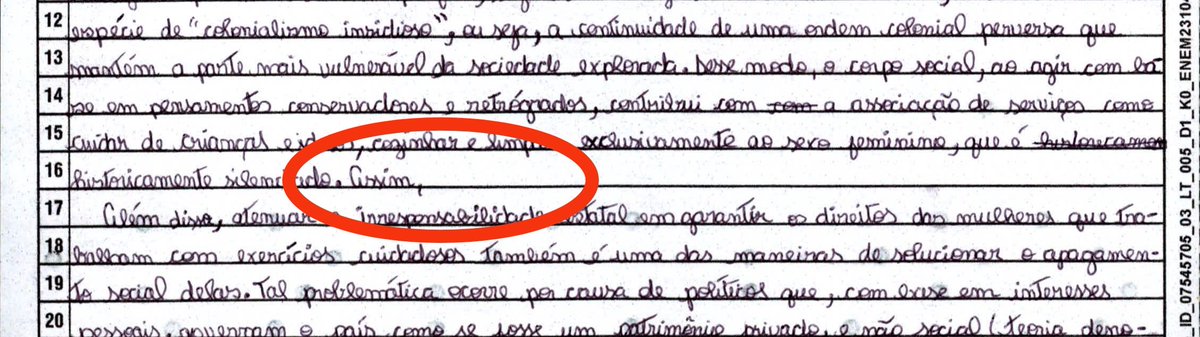 12 espécie de "colonialismo insidioso", ou seja, a continuidade de uma ordem colonial perversa que
13 mantém a parte mais vulnerável da sociedade explorada. Desse modo, o corpo social, ao agir com ba-
14 se em pensamentos conservadores e retrógrados, contribui com com a associação de serviços como
15 cuidar de crianças e , cozinhar e exclusivamente ao sexo feminino, que é historicamen
16 historicamente silenciado. Assim,
17 Além disso, atenuar a irresponsabilidade estatal em garantir os direitos das mulheres que tra-
18 balham com exercícios cuidadosos também é uma das maneiras de solucionar o apagamen-
19 to social delas. Tal problemática ocorre por causa de políticos que, com exise em interesses
20 pessoais, governam o país como se fosse um patrimônio privado, e não social (teoria deno-
_ID_07545705_03_LT_005_D1_K0_ENEM23104